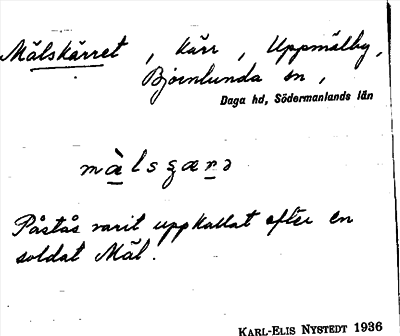 Målskärret, kärr, Uppmälby,
Björnlunda sn,
Daga hd, Södermanlands län
Påstås varit uppkallat efter en
soldat Mål.
KARL-ELIS NYSTEDT 1936